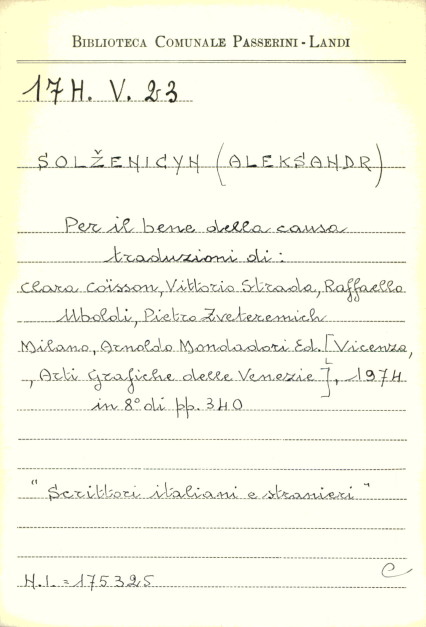 BIBLIOTECA COMUNALE PASSERINI - LANDI
17 H. V. 23
SOLŽENICYN (ALEKSANDR)
Per il bene della causa
traduzioni di:
Clara Coïsson, Vittorio Strada, Raffaello
Uboldi, Pietro Zveteremich
Milano, Arnoldo Mondadori Ed. [Vicenza,
, Arti Grafiche delle Venezie], 1974
in 8° di pp. 340
"Scrittori italiani e stranieri"
N.I. = 175325
C